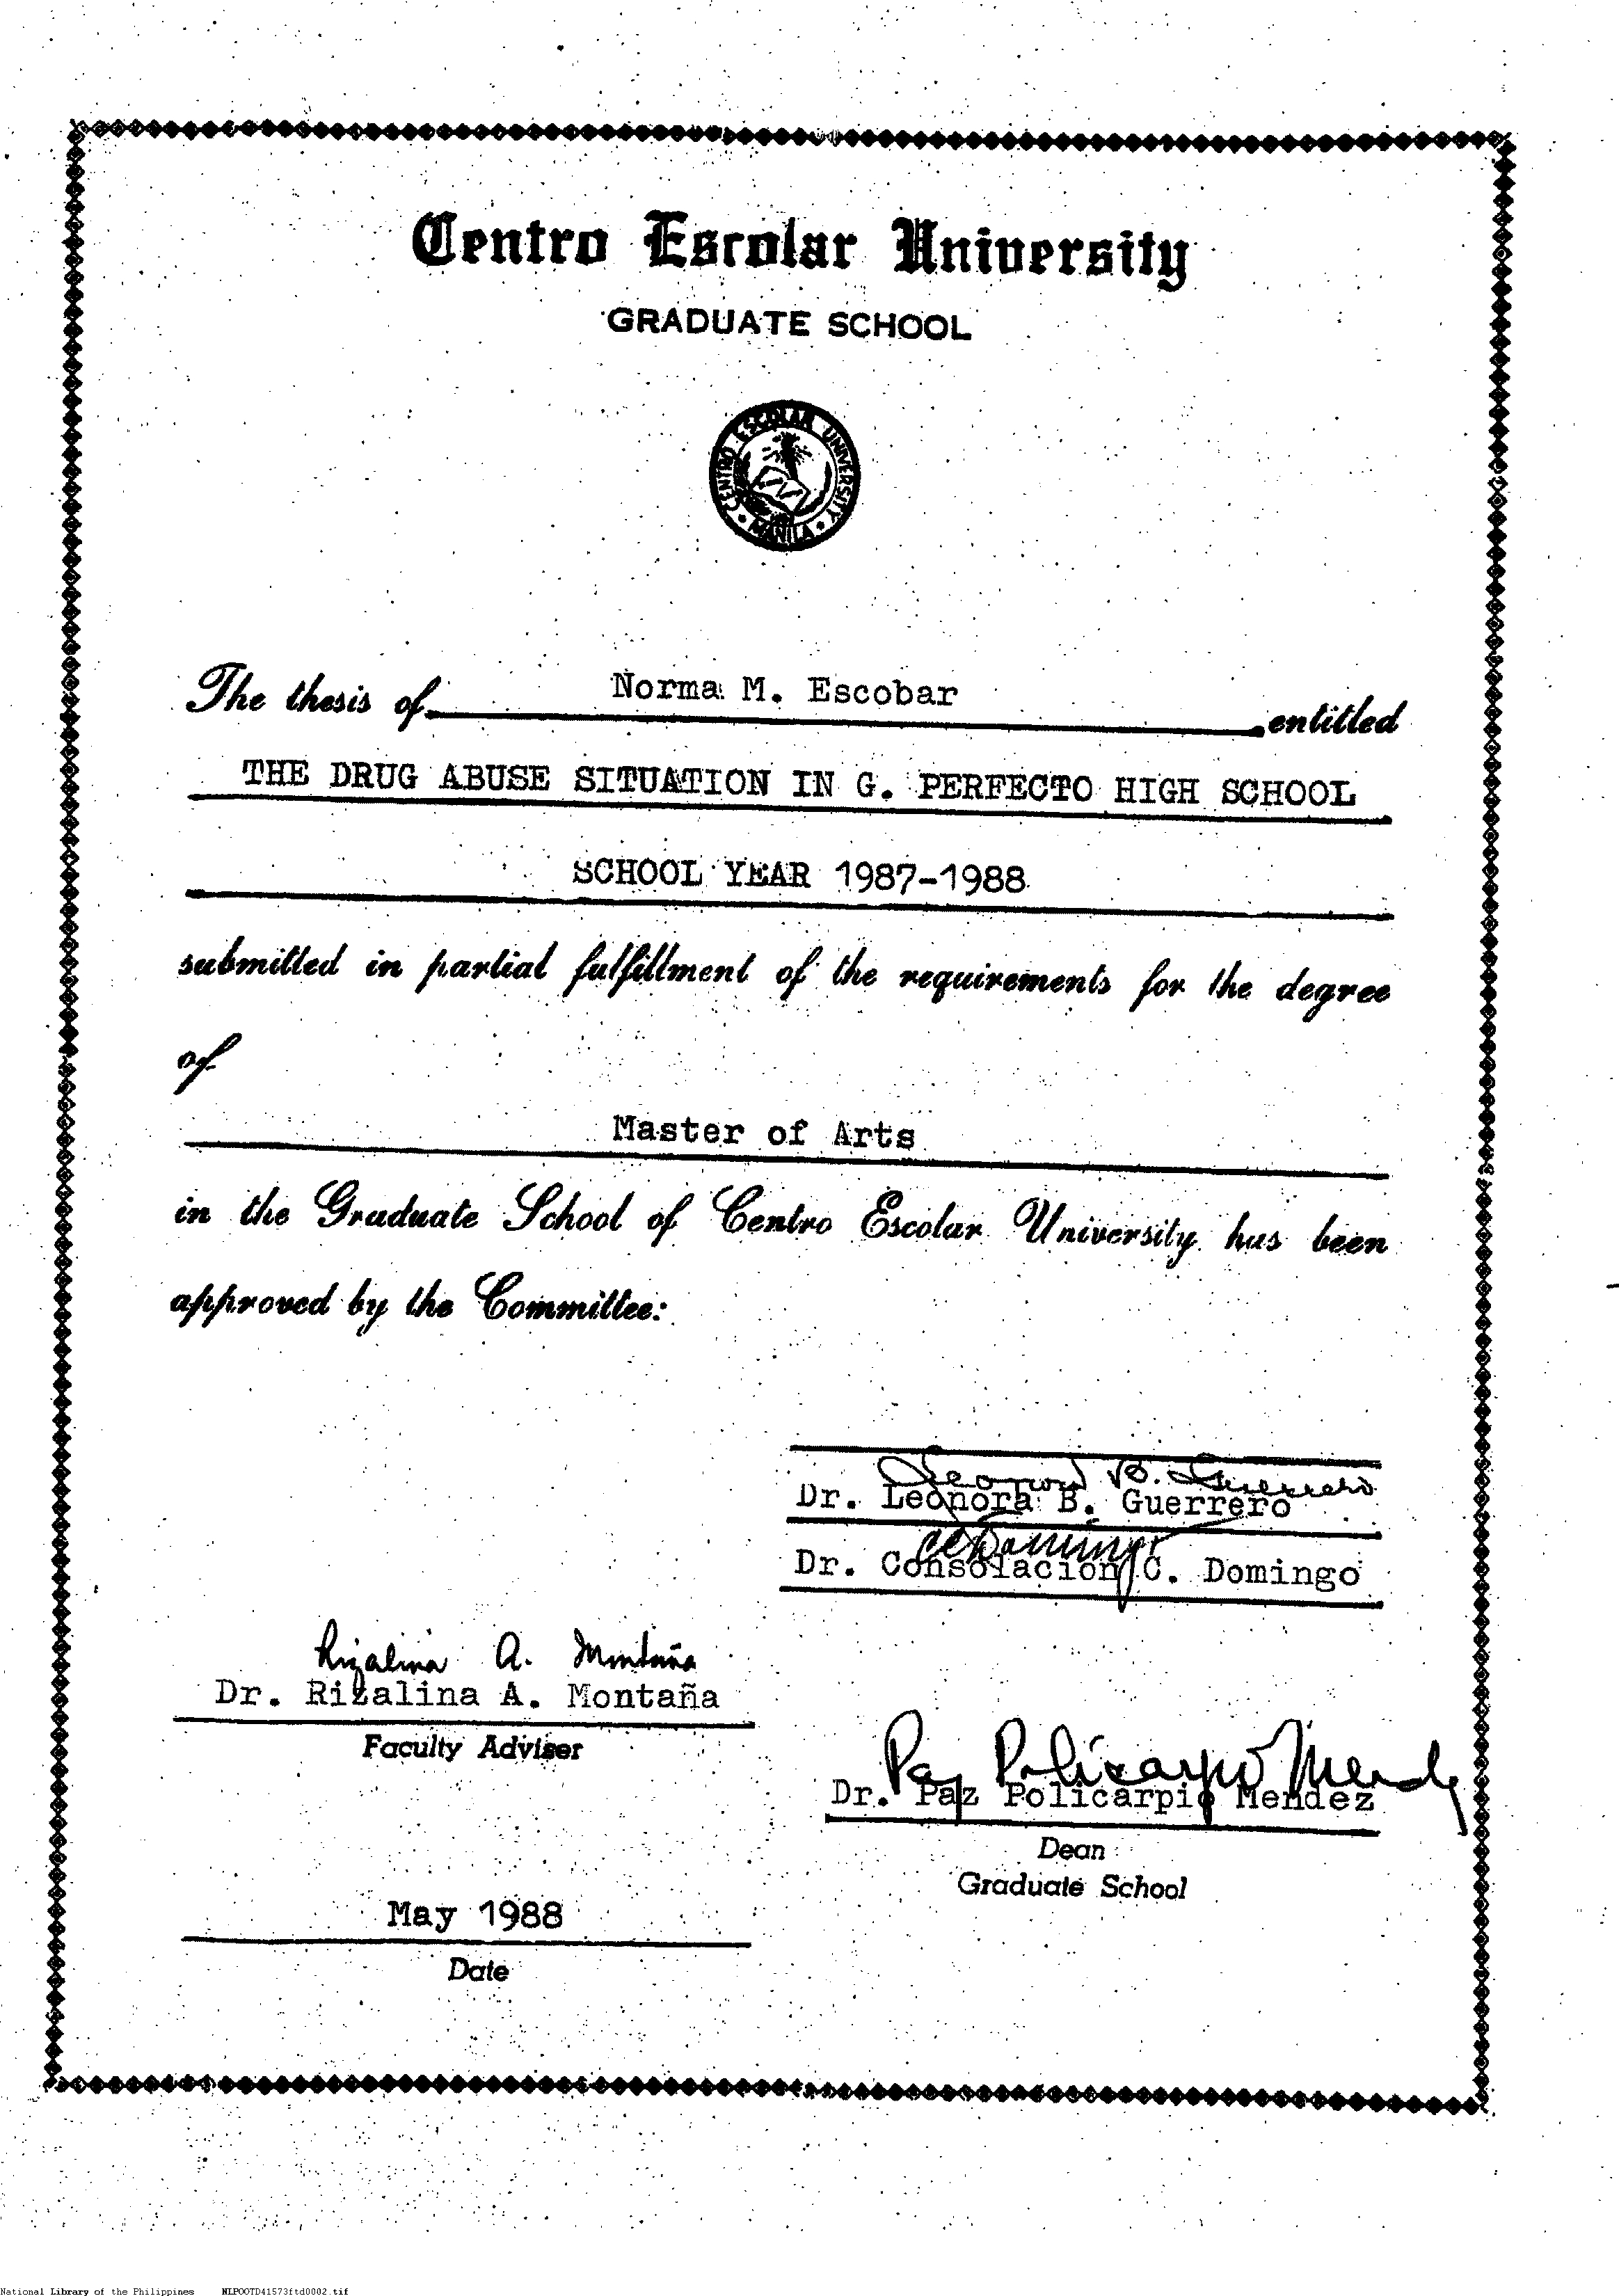 Centro Escolar University
GRADUATE SCHOOL
CENTRO ESCOLAR UNIVERSITY
MANILA
The thesis of Norma M. Escobar, entitled
THE DRUG ABUSE SITUATION IN G. PERFECTO HIGH SCHOOL
SCHOOL YEAR 1987-1988
submitted in partial fulfillment of the requirements for the degree
of
Master of Arts
in the Graduate School of Centro Escolar University has been
approved by the Committee:
Leonora B. Guerrero
Dr. Leonora B. Guerrero
CCDomingo
Dr. Consolacion C. Domingo
Rizalina A. Montaña
Dr. Rizalina A. Montaña
Faculty Adviser
Paz Policarpio Mendez
Dr. Paz Policarpio Mendez
Dean
Graduate School
May 1988
Date
National Library of the Philippines NLPOOTD41573ftd0002.tif